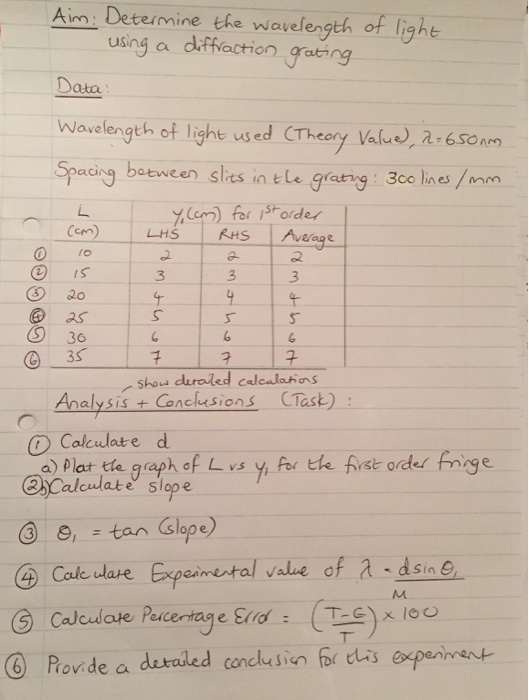 Aim: Determine the wavelength of light
using a diffraction grating
Data:
Wavelength of light used (Theory Value), λ = 650nm
Spacing between slits in the grating: 300 lines/mm
L (cm) y₁(cm) for 1st order
LHS RHS Average
① 10 2 2 2
② 15 3 3 3
③ 20 4 4 4
④ 25 5 5 5
⑤ 30 6 6 6
⑥ 35 7 7 7
show detailed calculations
Analysis + Conclusions (Task):
① Calculate d
a) Plot the graph of L vs y₁ for the first order fringe
② b) Calculate slope
③ θ₁ = tan (slope)
④ Calculate Experimental value of λ = d sin θ₁ / M
⑤ Calculate Percentage Error = (T-E / T) × 100
⑥ Provide a detailed conclusion for this experiment